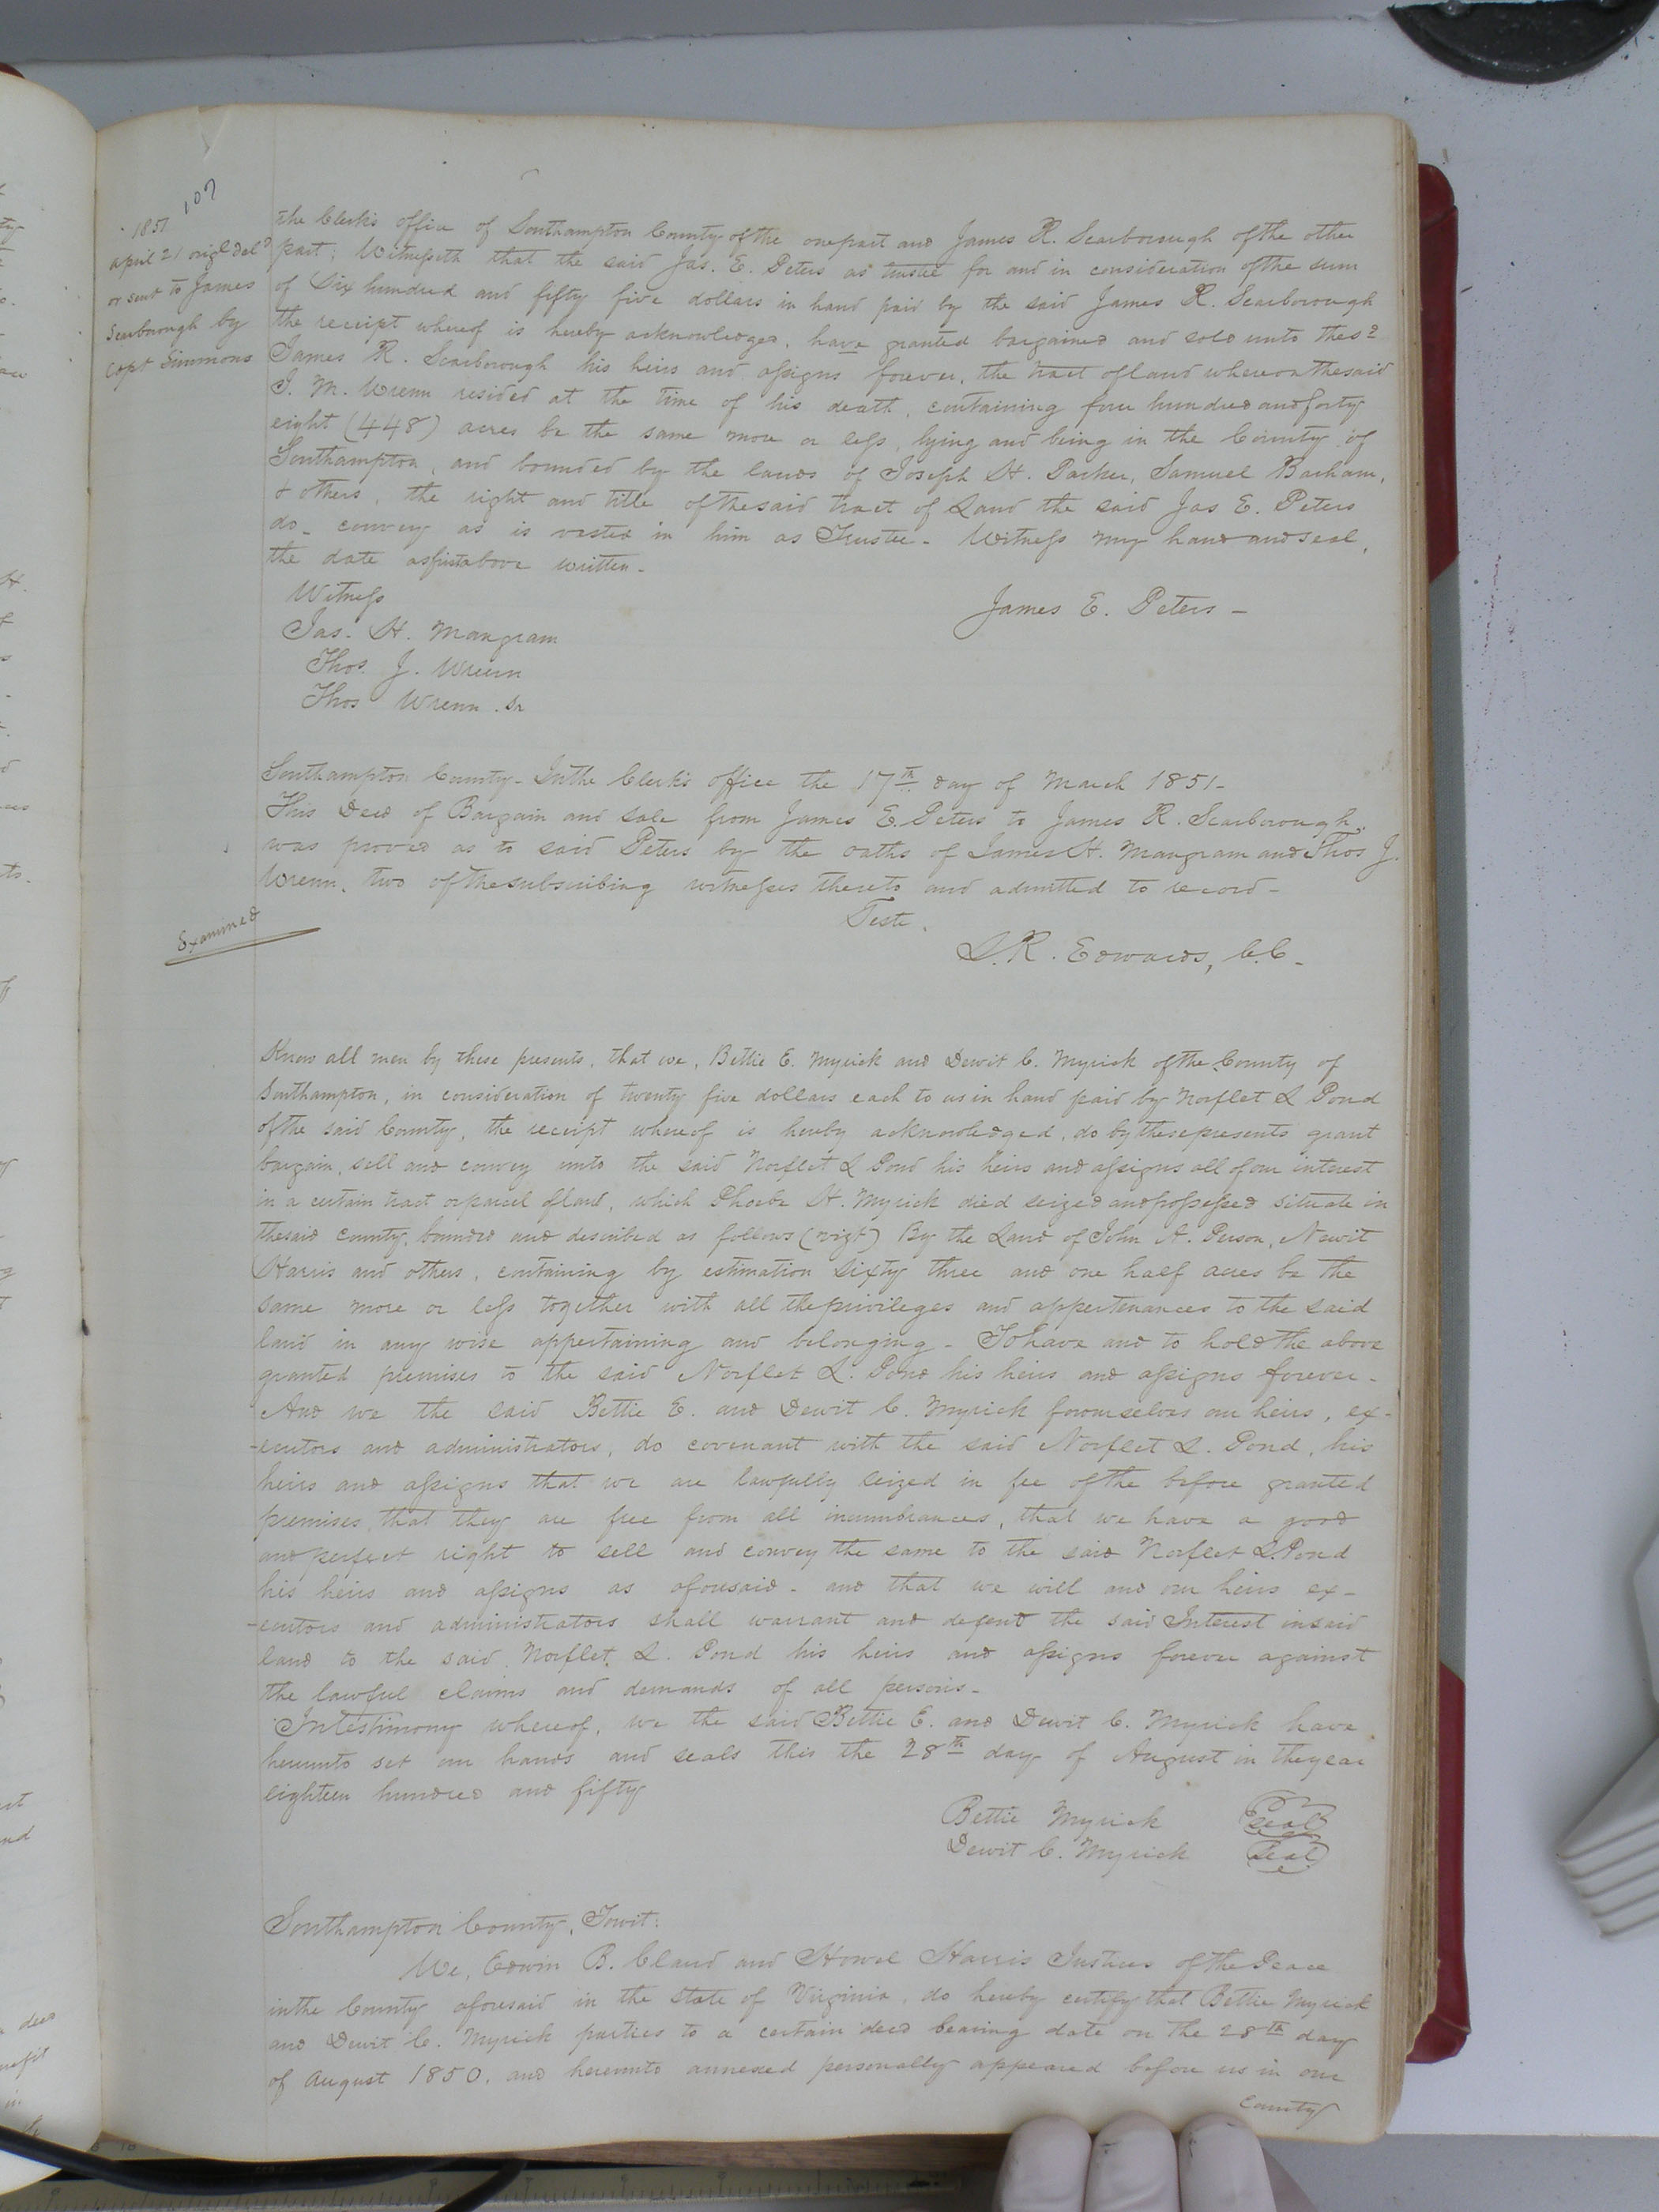 107
1851
april 21 origl deld
or sent to James
Scarborough by
Capt Simmons
the Clerk's office of Southampton County of the one part and James R. Scarborough of the other
part; Witnesseth that the said Jas. E. Peters as trustee for and in consideration of the sum
of Six hundred and fifty five dollars in hand paid by the said James R. Scarborough
the receipt whereof is hereby acknowledged, have granted bargained and sold unto the sd
James R. Scarborough his heirs and assigns forever, the tract of land whereon the said
J. M. Wrenn resided at the time of his death, containing four hundred and forty
eight (448) acres be the same more or less, lying and being in the County of
Southampton, and bounded by the lands of Joseph H. Parker, Samuel Barham,
& others, the right and title of the said tract of Land the said Jas E. Peters
do convey as is vested in him as Trustee - Witness my hand and seal,
the date as first above written -
Witness
James E. Peters -
Jas. H. Mangram
Thos. J. Wrenn
Thos Wrenn . Sr
Southampton County - In the Clerk's office the 17th day of March 1851 -
This Deed of Bargain and sale from James E. Peters to James R. Scarborough,
was proved as to said Peters by the oaths of James H. Mangram and Thos J.
Wrenn, two of the subscribing witnesses thereto and admitted to record -
Examined
Teste,
L. R. Edwards, C.C. -
Know all men by these presents, that we, Bettie E. Myrick and Dewit C. Myrick of the County of
Southampton, in consideration of twenty five dollars each to us in hand paid by Norflet L Pond
of the said County, the receipt whereof is hereby acknowledged, do by these presents grant
bargain, sell and convey unto the said Norflet L Pond his heirs and assigns all of our interest
in a certain tract or parcel of land, which Phoebe H. Myrick died seized and possessed situate in
the said County, bounded and described as follows (vizt) By the Land of John A. Person, Newit
Harris and others, containing by estimation sixty three and one half acres be the
same more or less together with all the privileges and appertenances to the said
land in any wise appertaining and belonging - To have and to hold the above
granted premises to the said Norflet L. Pond his heirs and assigns forever -
And we the said Bettie E. and Dewit C. Myrick for ourselves our heirs, ex-
-ecutors and administrators, do covenant with the said Norflet L. Pond, his
heirs and assigns that we are lawfully seized in fee of the before granted
premises, that they are free from all incumbrances, that we have a good
and perfect right to sell and convey the same to the said Norflet L. Pond
his heirs and assigns as aforesaid - and that we will and our heirs ex-
-ecutors and administrators shall warrant and defend the said Interest in said
land to the said Norflet L. Pond his heirs and assigns forever against
the lawful claims and demands of all persons -
In testimony whereof, we the said Bettie E. and Dewit C. Myrick have
hereunto set our hands and seals this the 28th day of August in the year
eighteen hundred and fifty
Bettie Myrick Seal
Dewit C. Myrick Seal
Southampton County, Towit:
We, Edwin B. Claud and Howel Harris Justices of the Peace
in the County aforesaid in the State of Virginia, do hereby certify that Bettie Myrick
and Dewit C. Myrick parties to a certain deed bearing date on the 28th day
of August 1850, and hereunto annexed personally appeared before us in our
County